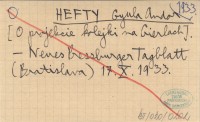 1933
HEFTY Gyula Andor
[O projekcie kolejki na Gierlach].
– Neues Pressburger Tagblatt
(Bratislava) 17.X.1933.